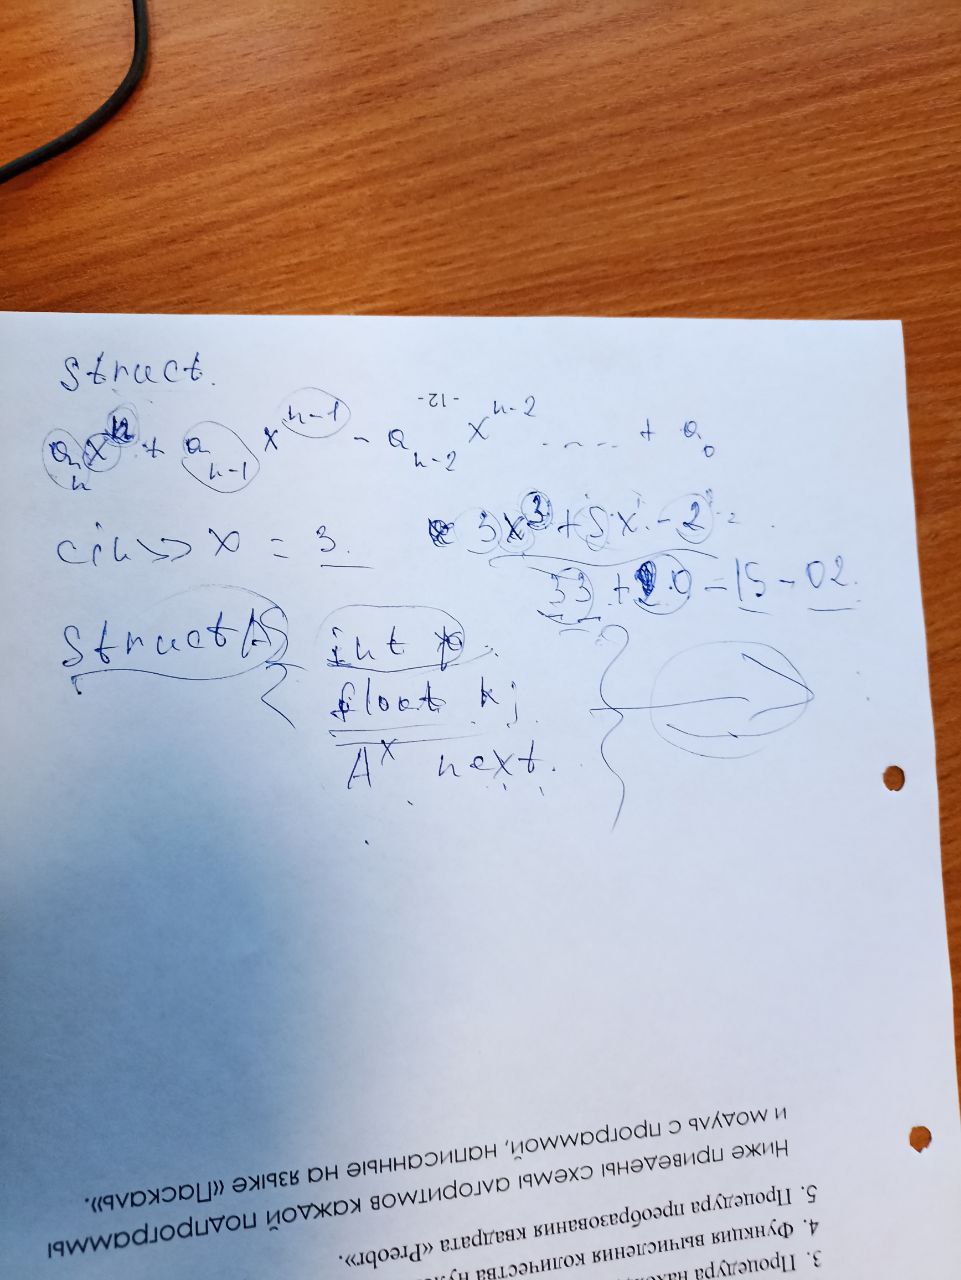 struct.
-12-
aₙxⁿ + aₙ₋₁ xⁿ⁻¹ - aₙ₋₂ xⁿ⁻² ..... + a₀
cin >> x = 3.
3x³ + 5x - 2
33 + 20 - 15 - 02.
struct A
{
int
float k;
A* next.
}
3. Процедура
4. Функция вычисления количества
5. Процедура преобразования квадрата «Preobr».
Ниже приведены схемы алгоритмов каждой подпрограммы
и модуль с программой, написанные на языке «Паскаль».